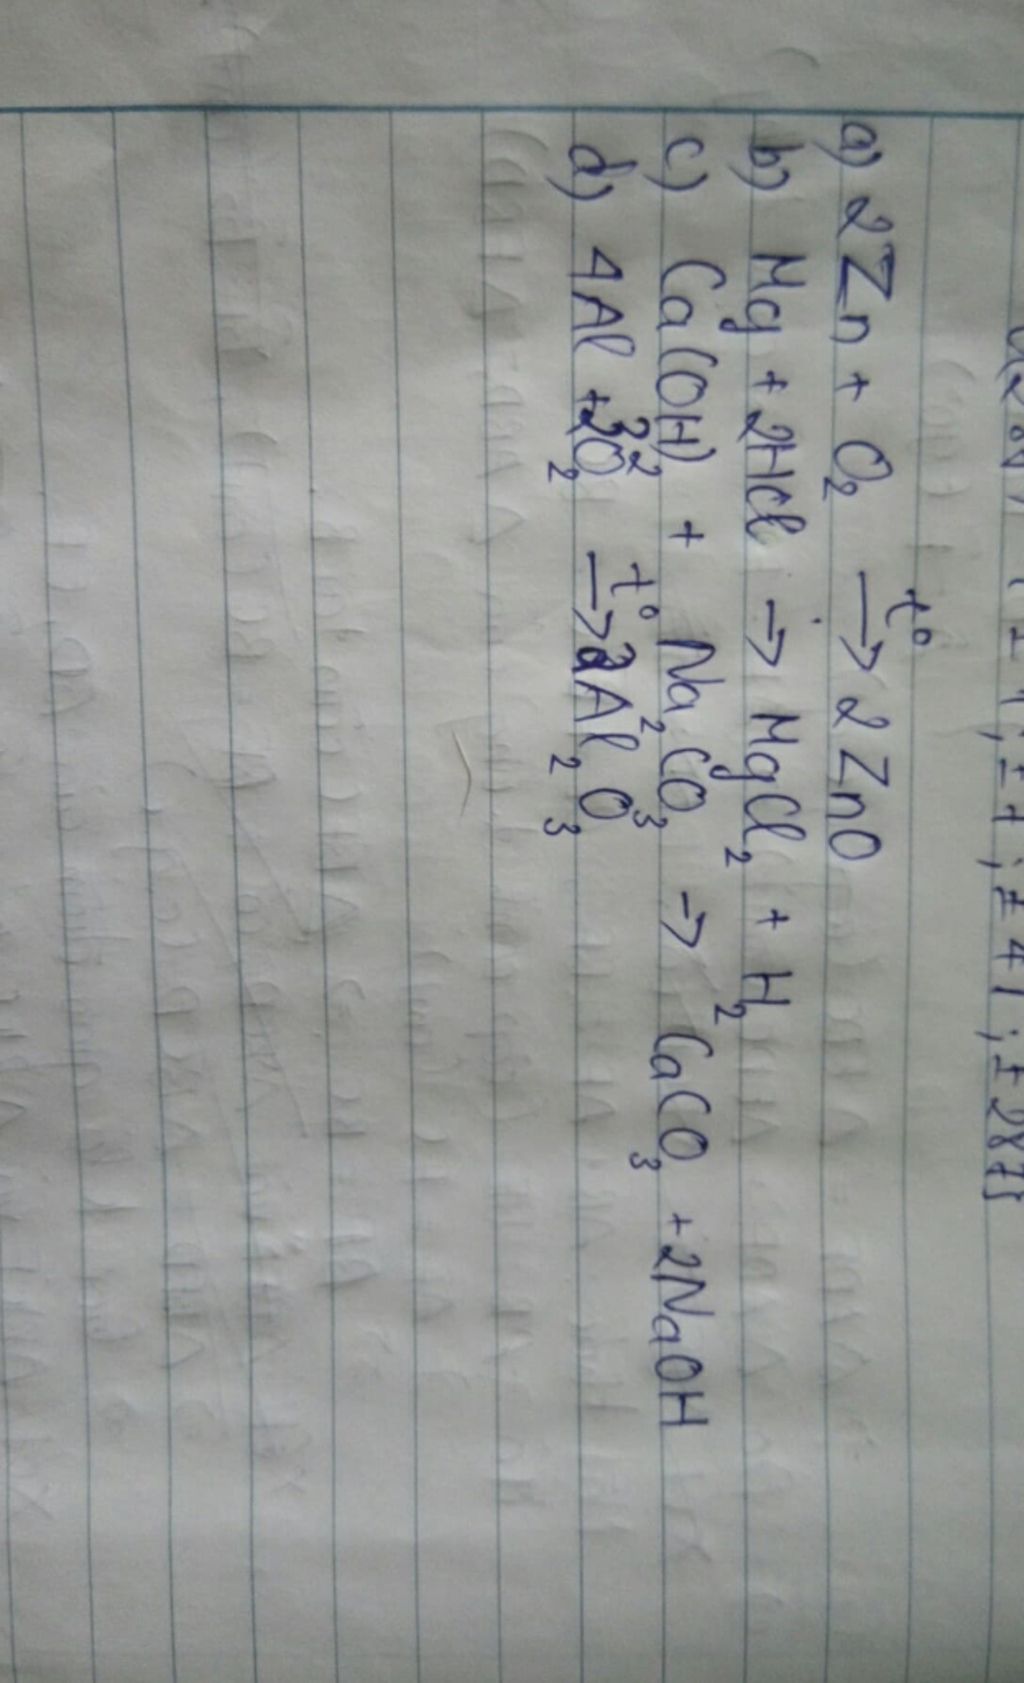 a) 2Zn + O₂ →t° 2ZnO
b) Mg + 2HCl → MgCl₂ + H₂
c) Ca(OH)₂ + Na₂CO₃ → CaCO₃ + 2NaOH
d) 4Al + 3O₂ →t° 2Al₂O₃